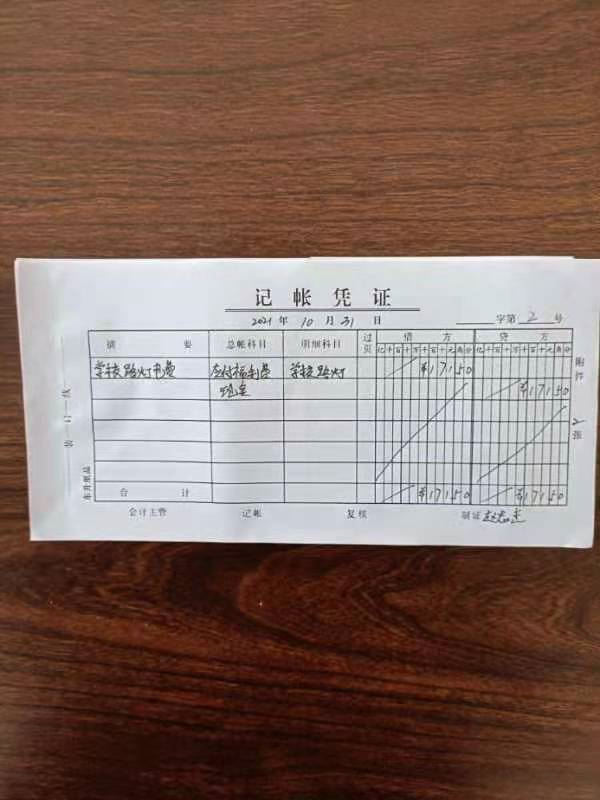 记帐凭证
2021年10月31日 字第2号
摘要 总帐科目 明细科目 过页 借方 贷方
亿千百十万千百十元角分 亿千百十万千百十元角分
学校路灯电费 应付福利费 学校路灯 ¥17150
现金 ¥17150
合计 ¥17150 ¥17150
附件2张
装订线
会计主管 记帐 复核 制证